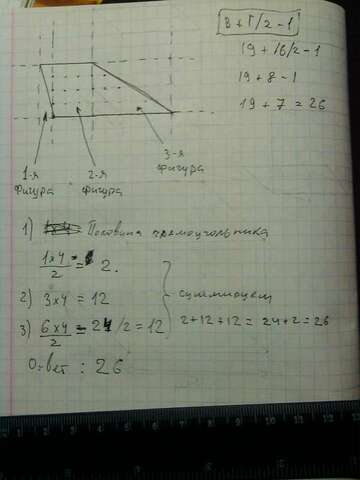 В + Г/2 - 1
19 + 16/2 - 1
19 + 8 - 1
19 + 7 = 26
1-я фигура
2-я фигура
3-я фигура
1) Половина прямоугольника
1×4/2 = 2.
2) 3×4 = 12
3) 6×4/2 = 24/2 = 12
суммируем
2+12+12 = 24+2 = 26
Ответ : 26
0 1 2 3 4 5 6 7 8 9 10 11 12 13